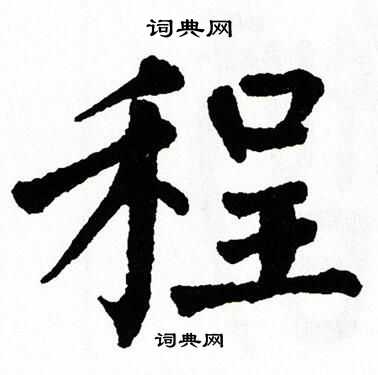 词典网
程
词典网